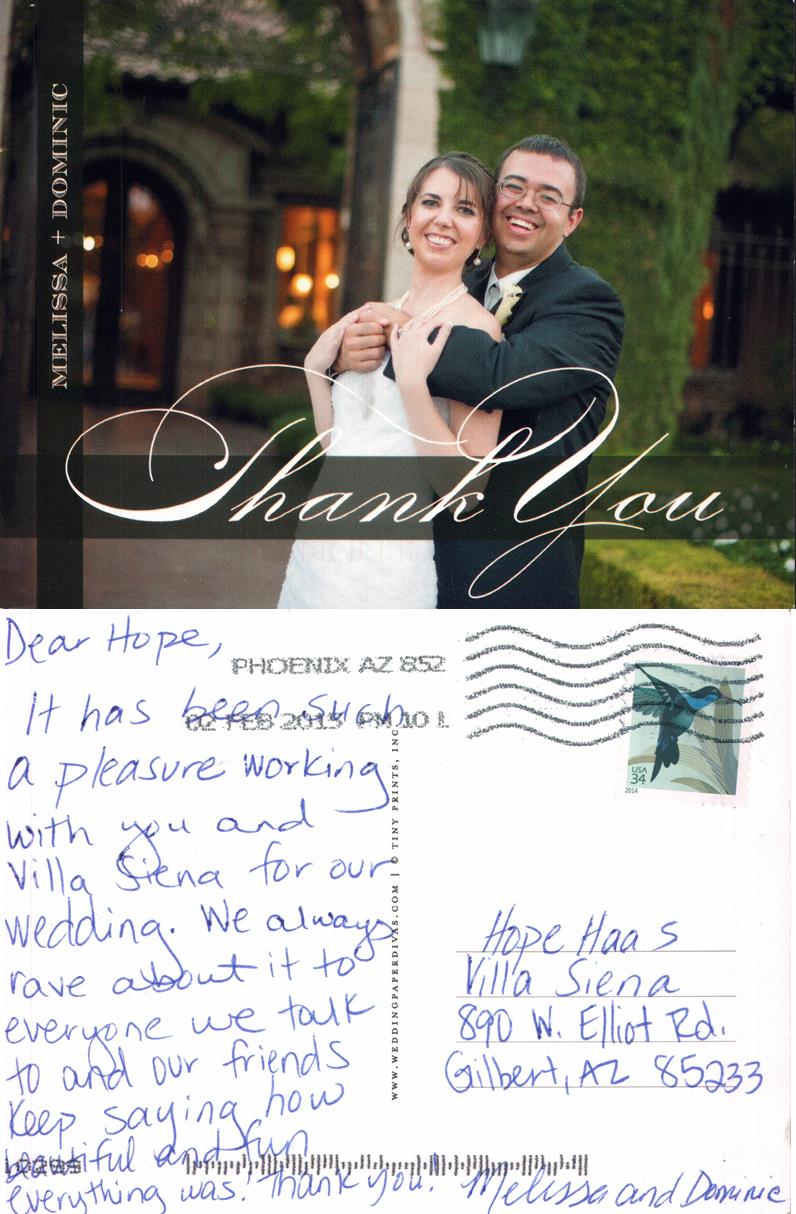 MELISSA + DOMINIC
Thank You
Dear Hope,
It has been such
a pleasure working
with you and
Villa Siena for our
wedding. We always
rave about it to
everyone we talk
to and our friends
keep saying how
beautiful and fun
everything was! Thank you! Melissa and Dominic
PHOENIX AZ 852
02 FEB 2015 PM 10 L
USA
34
2014
WWW.WEDDINGPAPERDIVAS.COM | © TINY PRINTS, INC.
Hope Haas
Villa Siena
890 W. Elliot Rd.
Gilbert, AZ 85233